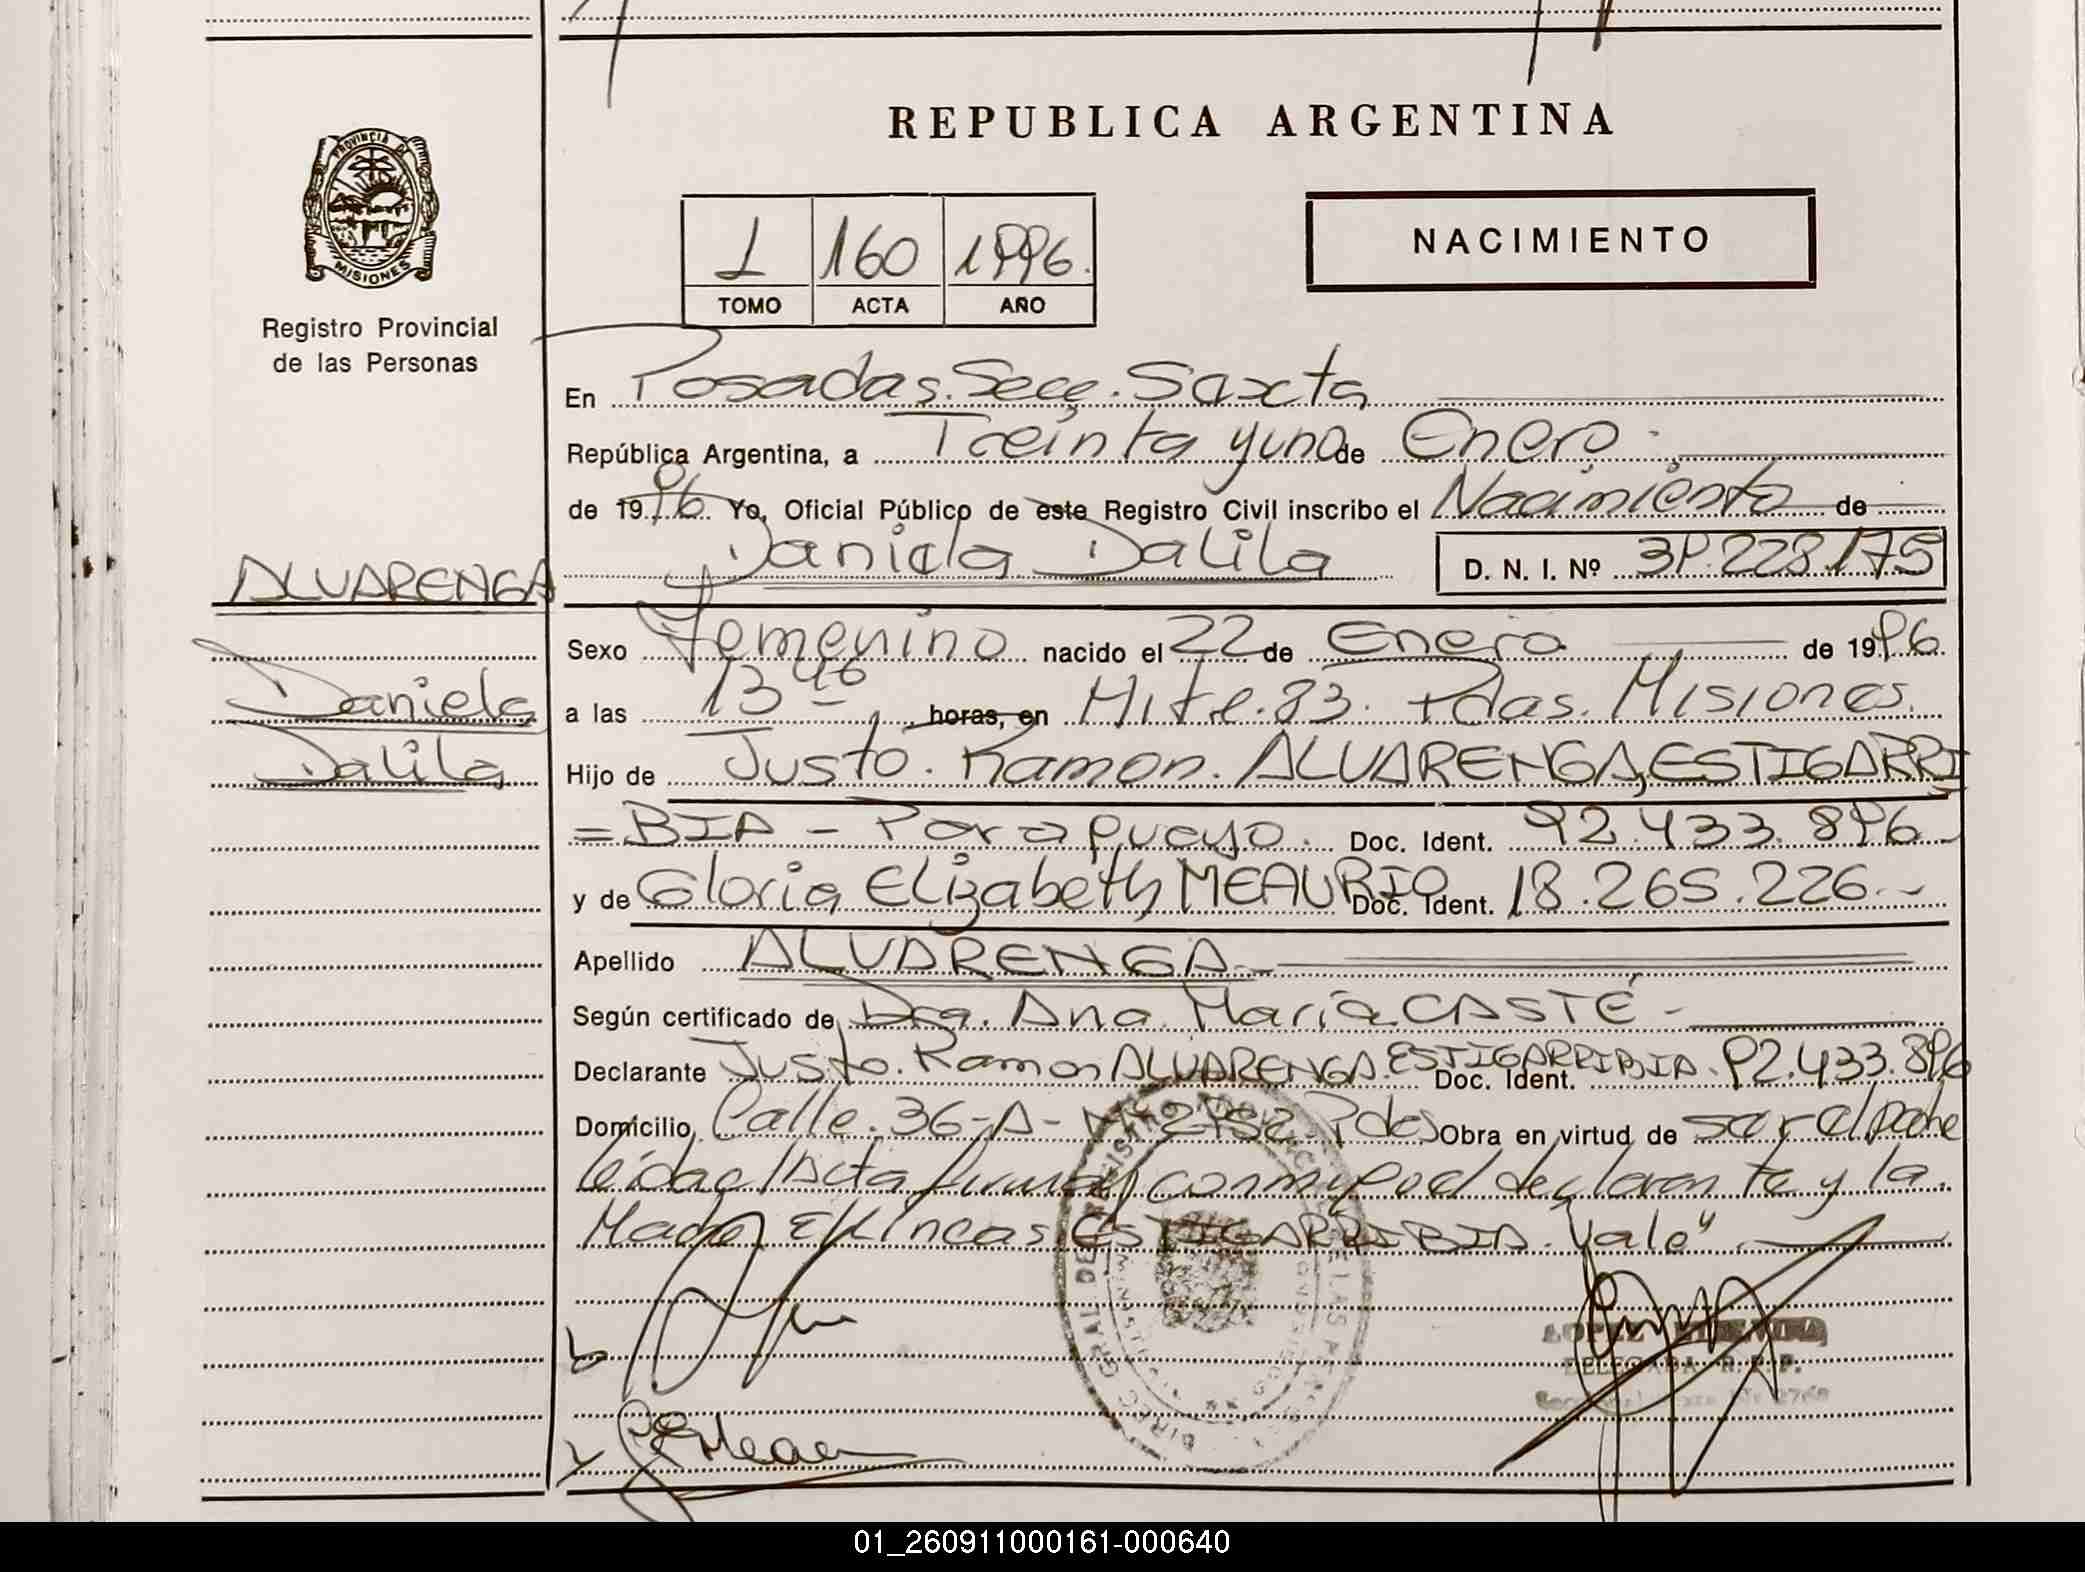 REPUBLICA ARGENTINA
PROVINCIA DE
MISIONES
Registro Provincial
de las Personas
I 160 1996.
TOMO ACTA AÑO
NACIMIENTO
En Posadas. Secc. Sexta
República Argentina, a Treinta y uno de Enero.
de 1996. Yo, Oficial Público de este Registro Civil inscribo el Nacimiento de
Daniela Dalila D. N. I. Nº 39.223.175
ALVARENGA
Daniela
Dalila
Sexo Femenino nacido el 22 de Enero de 1996.
a las 13 46 horas, en Mitre. 83. Pdas. Misiones.
Hijo de Justo. Ramon. ALVARENGA, ESTIGARRI
=BIA - Paraguayo. Doc. Ident. 92.433.896-
y de Gloria Elizabeth MEAURIO Doc. Ident. 18.265.226.-
Apellido ALVARENGA-
Según certificado de Dra. Ana María CASTÉ-
Declarante Justo. Ramon ALVARENGA. ESTIGARRIBIA. Doc. Ident. 92.433.896
Domicilio Calle. 36-A- Pdas Obra en virtud de ser el padre
leida el Acta firman conmigo el declarante y la
Madre. E/lineas: ESTIGARRIBIA. Vale"
LOPEZ
DELEGADA R. P. P.
01_260911000161-000640